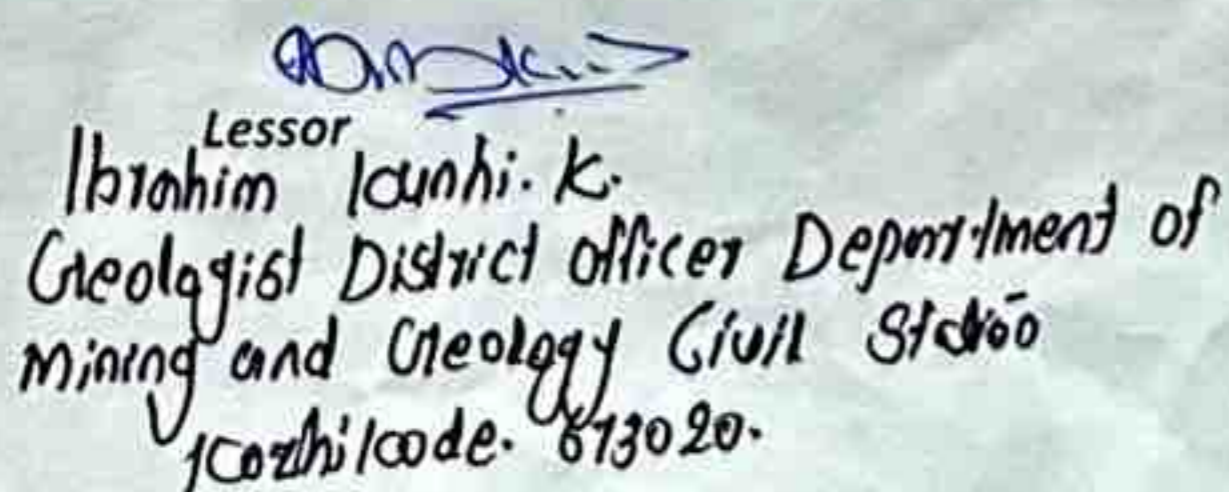 Lessor
Ibrahim kunhi. K.
Geologist District officer Department of
Mining and Geology Civil Station
Kozhikode. 673020.